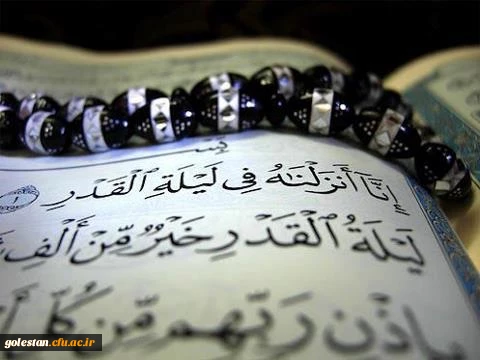 إِنَّآ أَنزَلْنَٰهُ فِى لَيْلَةِ ٱلْقَدْرِ ١
لَيْلَةُ ٱلْقَدْرِ خَيْرٌ مِّنْ أَلْفِ
رَبِّهِم مِّن كُلِّ
golestan.cfu.ac.ir